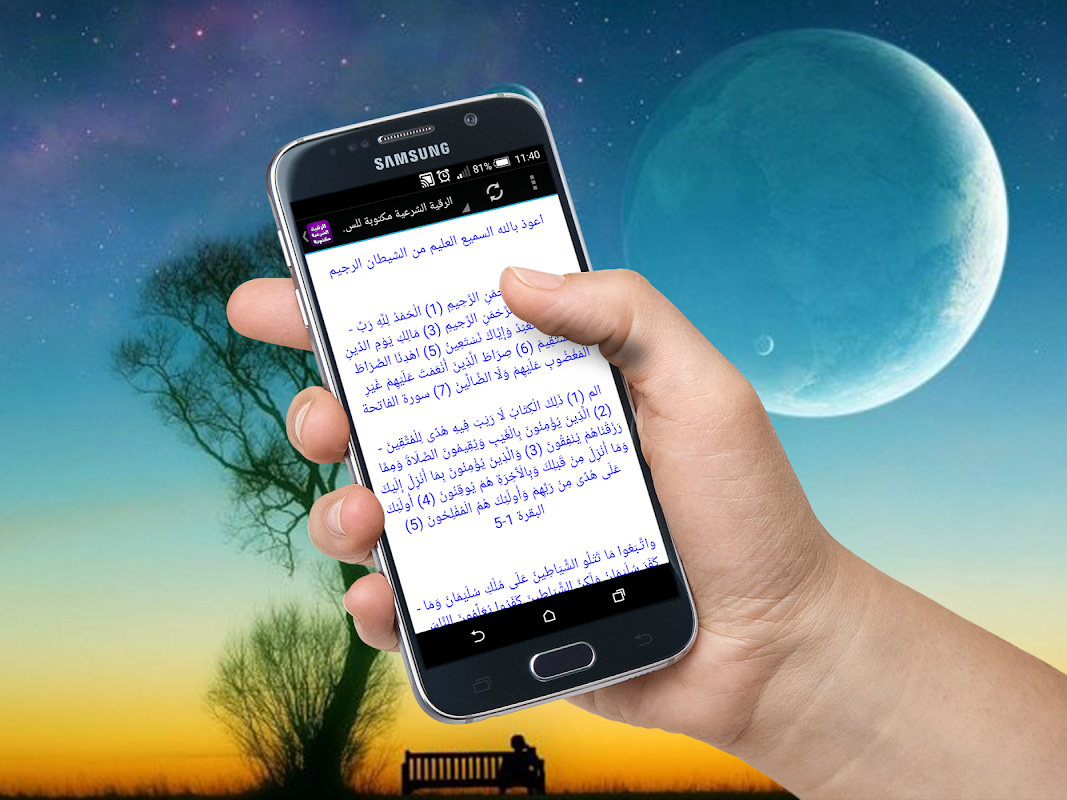 SAMSUNG
81% 11:40
الرقية الشرعية مكتوبة للس.
الرقية
الشرعية
مكتوبة
اعوذ بالله السميع العليم من الشيطان الرجيم
الرَّحِيمِ (1) الْحَمْدُ لِلَّهِ رَبِّ -
الرَّحْمَنِ الرَّحِيمِ (3) مَالِكِ يَوْمِ الدِّينِ
نَعْبُدُ وَإِيَّاكَ نَسْتَعِينُ (5) اهْدِنَا الصِّرَاطَ
الْمُسْتَقِيمَ (6) صِرَاطَ الَّذِينَ أَنْعَمْتَ عَلَيْهِمْ غَيْرِ
الْمَغْضُوبِ عَلَيْهِمْ وَلَا الضَّالِّينَ (7) سورة الفاتحة
الم (1) ذَلِكَ الْكِتَابُ لَا رَيْبَ فِيهِ هُدًى لِلْمُتَّقِينَ -
(2) الَّذِينَ يُؤْمِنُونَ بِالْغَيْبِ وَيُقِيمُونَ الصَّلَاةَ وَمِمَّا
رَزَقْنَاهُمْ يُنْفِقُونَ (3) وَالَّذِينَ يُؤْمِنُونَ بِمَا أُنْزِلَ إِلَيْكَ
وَمَا أُنْزِلَ مِنْ قَبْلِكَ وَبِالْآخِرَةِ هُمْ يُوقِنُونَ (4) أُولَئِكَ
عَلَى هُدًى مِنْ رَبِّهِمْ وَأُولَئِكَ هُمُ الْمُفْلِحُونَ (5)
البقرة 1-5
وَاتَّبَعُوا مَا تَتْلُو الشَّيَاطِينُ عَلَى مُلْكِ سُلَيْمَانَ وَمَا -
كَفَرَ سُلَيْمَانُ وَلَكِنَّ الشَّيَاطِينَ كَفَرُوا يُعَلِّمُونَ النَّاسَ